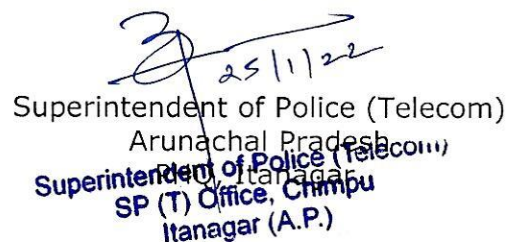 25/1/22
Superintendent of Police (Telecom)
Arunachal Pradesh
PHQ, Itanagar
Superintendent of Police (Telecom)
SP (T) Office, Chimpu
Itanagar (A.P.)